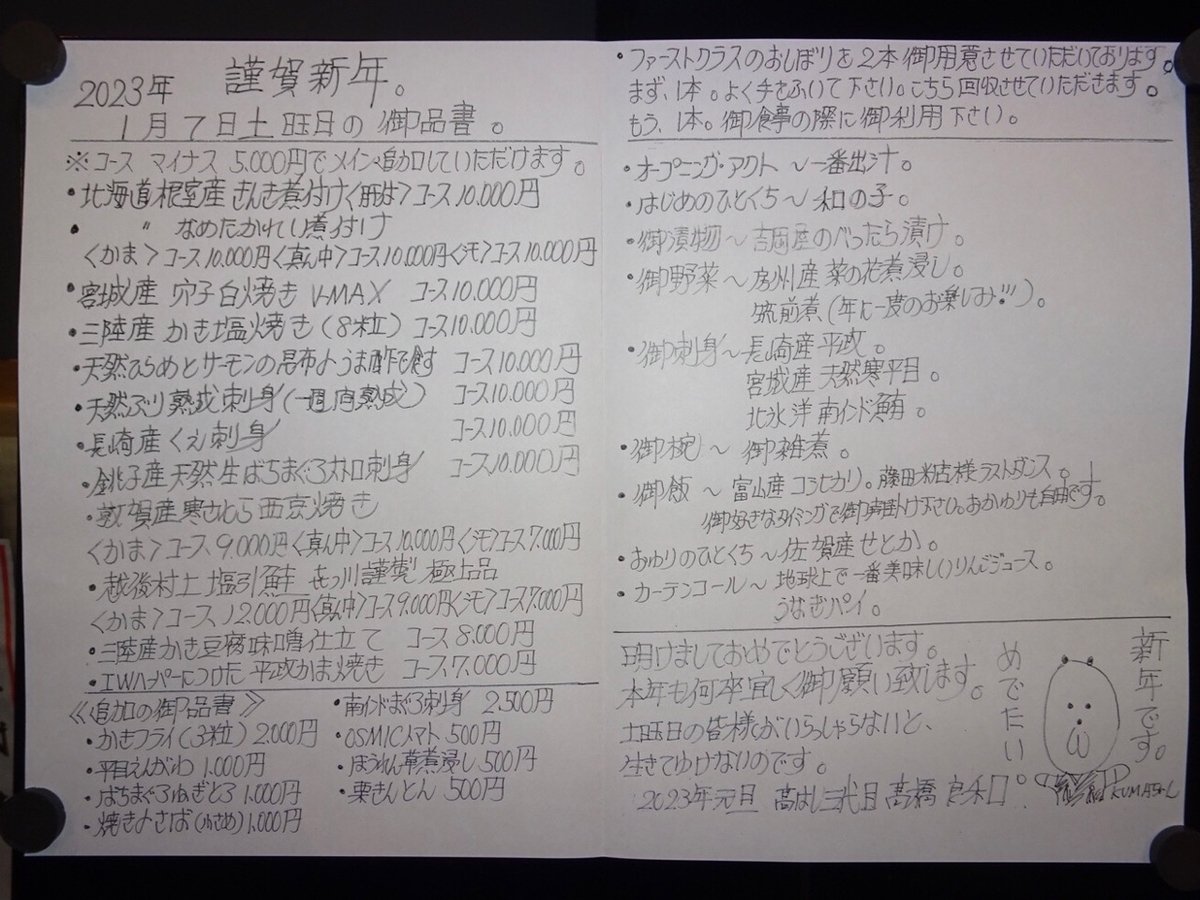 謹賀新年。
2023年
1月7日土曜日の御品書。
※コース マイナス 5.000円でメイン追加していただけます。
・北海道根室産 きんき煮付け〈肝は〉コース10.000円
・ 〃 なめたかれい煮付け
〈かま〉コース10.000円〈真ん中〉コース10.000円〈シモ〉コース10.000円
・宮城産 穴子白焼き V-MAX コース10.000円
・三陸産 かき塩焼き(8粒) コース10.000円
・天然ひらめとサーモンの昆布〆うま酢で食す コース10.000円
・天然ぶり熟成刺身(一週间熟成) コース10.000円
・長崎産くえ刺身 コース10.000円
・銚子産天然生ばちまぐろ大トロ刺身 コース10.000円
・敦賀産寒さわら西京焼き
〈かま〉コース9.000円〈真ん中〉コース10.000円〈シモ〉コース7.000円
・越後村上塩引鮭 㐂っ川謹製 極上品
〈かま〉コース12.000円〈真ん中〉コース9.000円〈シモ〉コース7.000円
・三陸産かき豆腐味噌仕立て コース8.000円
・IWハーパーにつけた 平政かま焼き コース7.000円
《追加の御品書》
・かきフライ(3粒) 2.000円
・平目えんがわ 1.000円
・ばちまぐろねぎとろ 1.000円
・焼き〆さば(小さめ) 1.000円
・南インドまぐろ刺身 2.500円
・OSMICトマト 500円
・ほうれん草煮浸し 500円
・栗きんとん 500円
・ファーストクラスのおしぼりを2本御用意させていただいております。
まず、1本。よく手をふいて下さい。こちら回収させていただきます。
もう、1本。御食事の際に御利用下さい。
・オープニング・アクト～一番出汁。
・はじめのひとくち～和の子。
・御漬物～ 産のべったら漬け。
・御野菜～房州産菜の花煮浸し。
筑前煮(年に一度のお楽しみ!!!)。
・御刺身～長崎産平政。
宮城産天然寒平目。
北氷洋南インド鮪。
・御椀～御雑煮。
・御飯～富山産コシヒカリ。藤田米店様ラストダンス。
御好きなタイミングで御声掛け下さい。おかわりも自由です。
・おわりのひとくち～佐賀産せとか。
・カーテンコール～地球上で一番美味しいりんごジュース。
うなぎパイ。
明けましておめでとうございます。
本年も何卒宜しく御願い致します。
土曜日の皆様がいらっしゃらないと、
生きてゆけないのです。
2023年元旦 高はし三代目 髙橋良和
新年です。
めでたい。
KUMAさん